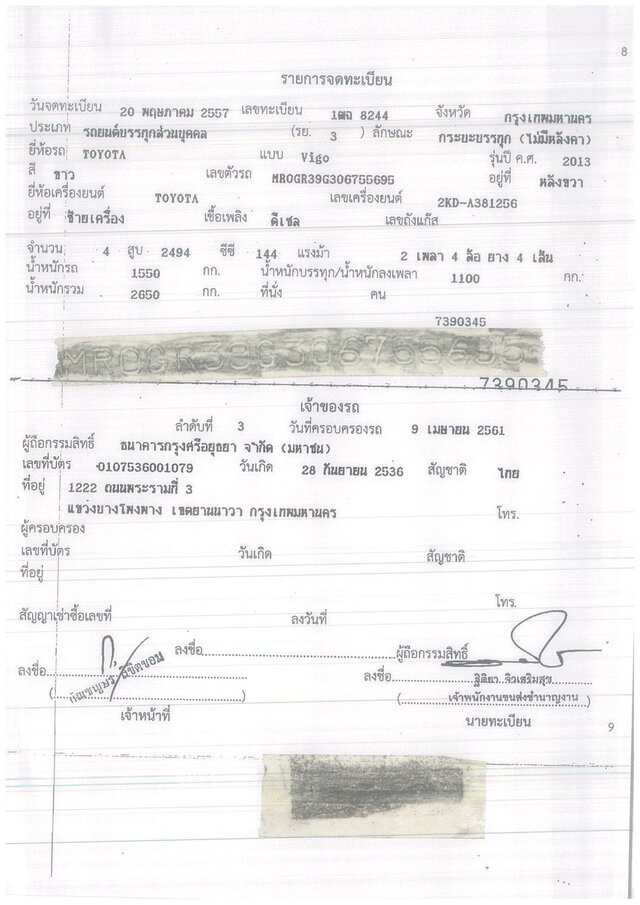 8
รายการจดทะเบียน
วันจดทะเบียน 20 พฤษภาคม 2557 เลขทะเบียน 1ฒฉ 8244 จังหวัด กรุงเทพมหานคร
ประเภท รถยนต์บรรทุกส่วนบุคคล (รย. 3 ) ลักษณะ กระบะบรรทุก (ไม่มีหลังคา)
ยี่ห้อรถ TOYOTA แบบ Vigo รุ่นปี ค.ศ. 2013
สี ขาว เลขตัวรถ MROGR39G306755695 อยู่ที่ หลังขวา
ยี่ห้อเครื่องยนต์ TOYOTA เลขเครื่องยนต์ 2KD-A381256
อยู่ที่ ซ้ายเครื่อง เชื้อเพลิง ดีเซล เลขถังแก๊ส
จำนวน 4 สูบ 2494 ซีซี 144 แรงม้า 2 เพลา 4 ล้อ ยาง 4 เส้น
น้ำหนักรถ 1550 กก. น้ำหนักบรรทุก/น้ำหนักลงเพลา 1100 กก.
น้ำหนักรวม 2650 กก. ที่นั่ง คน
7390345
MROGR39G306755695
7390345
เจ้าของรถ
ลำดับที่ 3 วันที่ครอบครองรถ 9 เมษายน 2561
ผู้ถือกรรมสิทธิ์ ธนาคารกรุงศรีอยุธยา จำกัด (มหาชน)
เลขที่บัตร 0107536001079 วันเกิด 28 กันยายน 2536 สัญชาติ ไทย
ที่อยู่ 1222 ถนนพระรามที่ 3
แขวงบางโพงพาง เขตยานนาวา กรุงเทพมหานคร โทร.
ผู้ครอบครอง
เลขที่บัตร วันเกิด สัญชาติ
ที่อยู่
โทร.
สัญญาเช่าซื้อเลขที่ ลงวันที่
ลงชื่อ ผู้ถือกรรมสิทธิ์
ลงชื่อ ลงชื่อ
เจ้าพนักงานขนส่งชำนาญงาน
เจ้าหน้าที่ นายทะเบียน
9